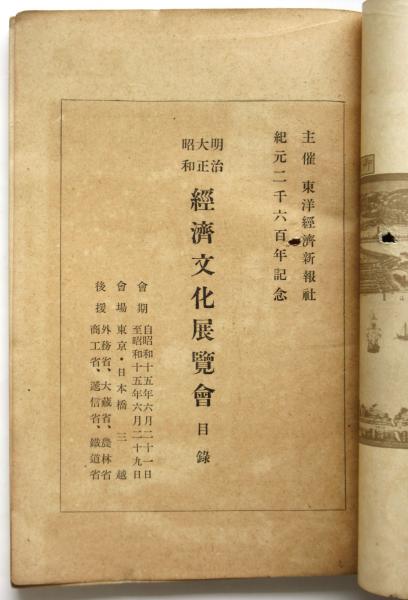 主催 東洋經濟新報社
紀元二千六百年記念
明治
大正
昭和
經濟文化展覽會 目錄
會期 自昭和十五年六月二十一日
至昭和十五年六月二十九日
會場 東京・日本橋 三越
後援 外務省、大藏省、農林省
商工省、遞信省、鐵道省